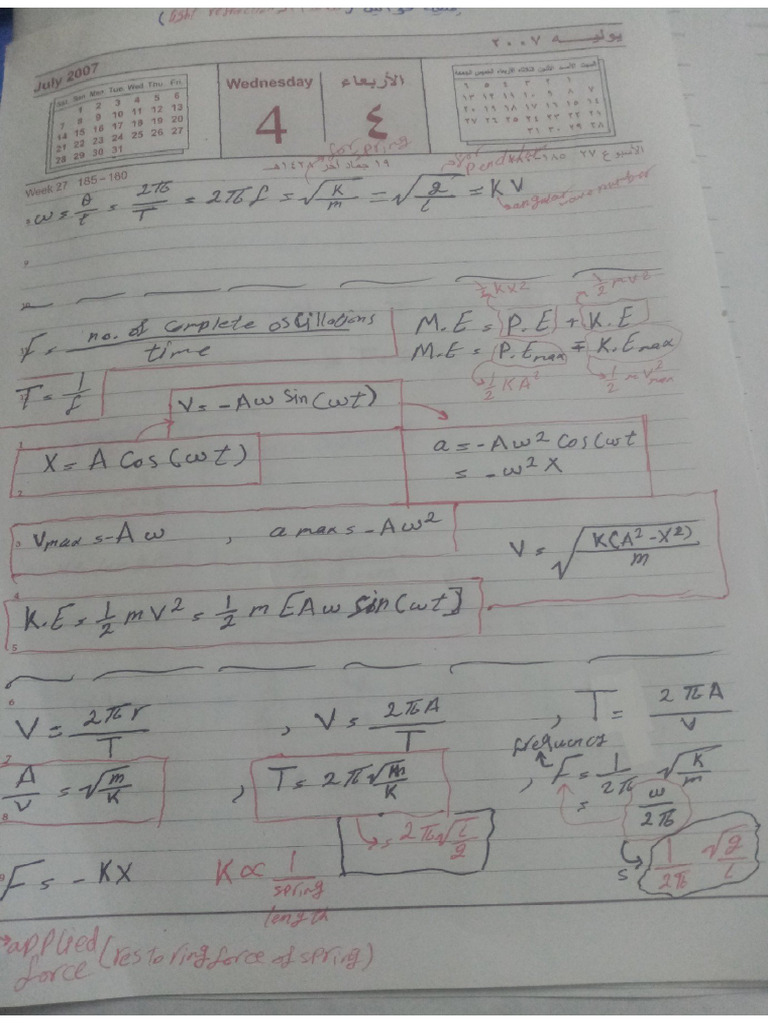 يوليـــه ٢٠٠٧
July 2007
Sat. Sun. Mon. Tue. Wed. Thu. Fri.
1 2 3 4 5 6
7 8 9 10 11 12 13
14 15 16 17 18 19 20
21 22 23 24 25 26 27
28 29 30 31
Wednesday
4
الأربعاء
٤
السبت الأحد الاثنين الثلاثاء الأربعاء الخميس الجمعة
Week 27 185-180
الأسبوع ٢٧ ١٨٥
for spring
for pendulum
ω = θ/t = 2π/T = 2πf = √(K/m) = √(g/L) = KV
angular wave number
1/2 KX² 1/2 mv²
F = no. of complete oscillations / time
M.E = P.E + K.E
M.E = P.E max = K.E max
1/2 KA² 1/2 mv² max
T = 1/f
V = -Aω sin(ωt)
X = A Cos(ωt)
a = -Aω² Cos(ωt
= -ω² X
Vmax = -Aω , a max = -Aω²
V = √(K(A²-X²)/m)
K.E = 1/2 mv² = 1/2 m [Aω sin(ωt)]
V = 2πr/T , V = 2πA/T , T = 2πA/V
frequency
A/V = √(m/K) , T = 2π√(m/K) , F = 1/2π √(K/m)
= ω/2π
= 2π√(L/g)
= 1/2π √(g/L)
F = -KX K ∝ 1/spring length
applied force (restoring force of spring)